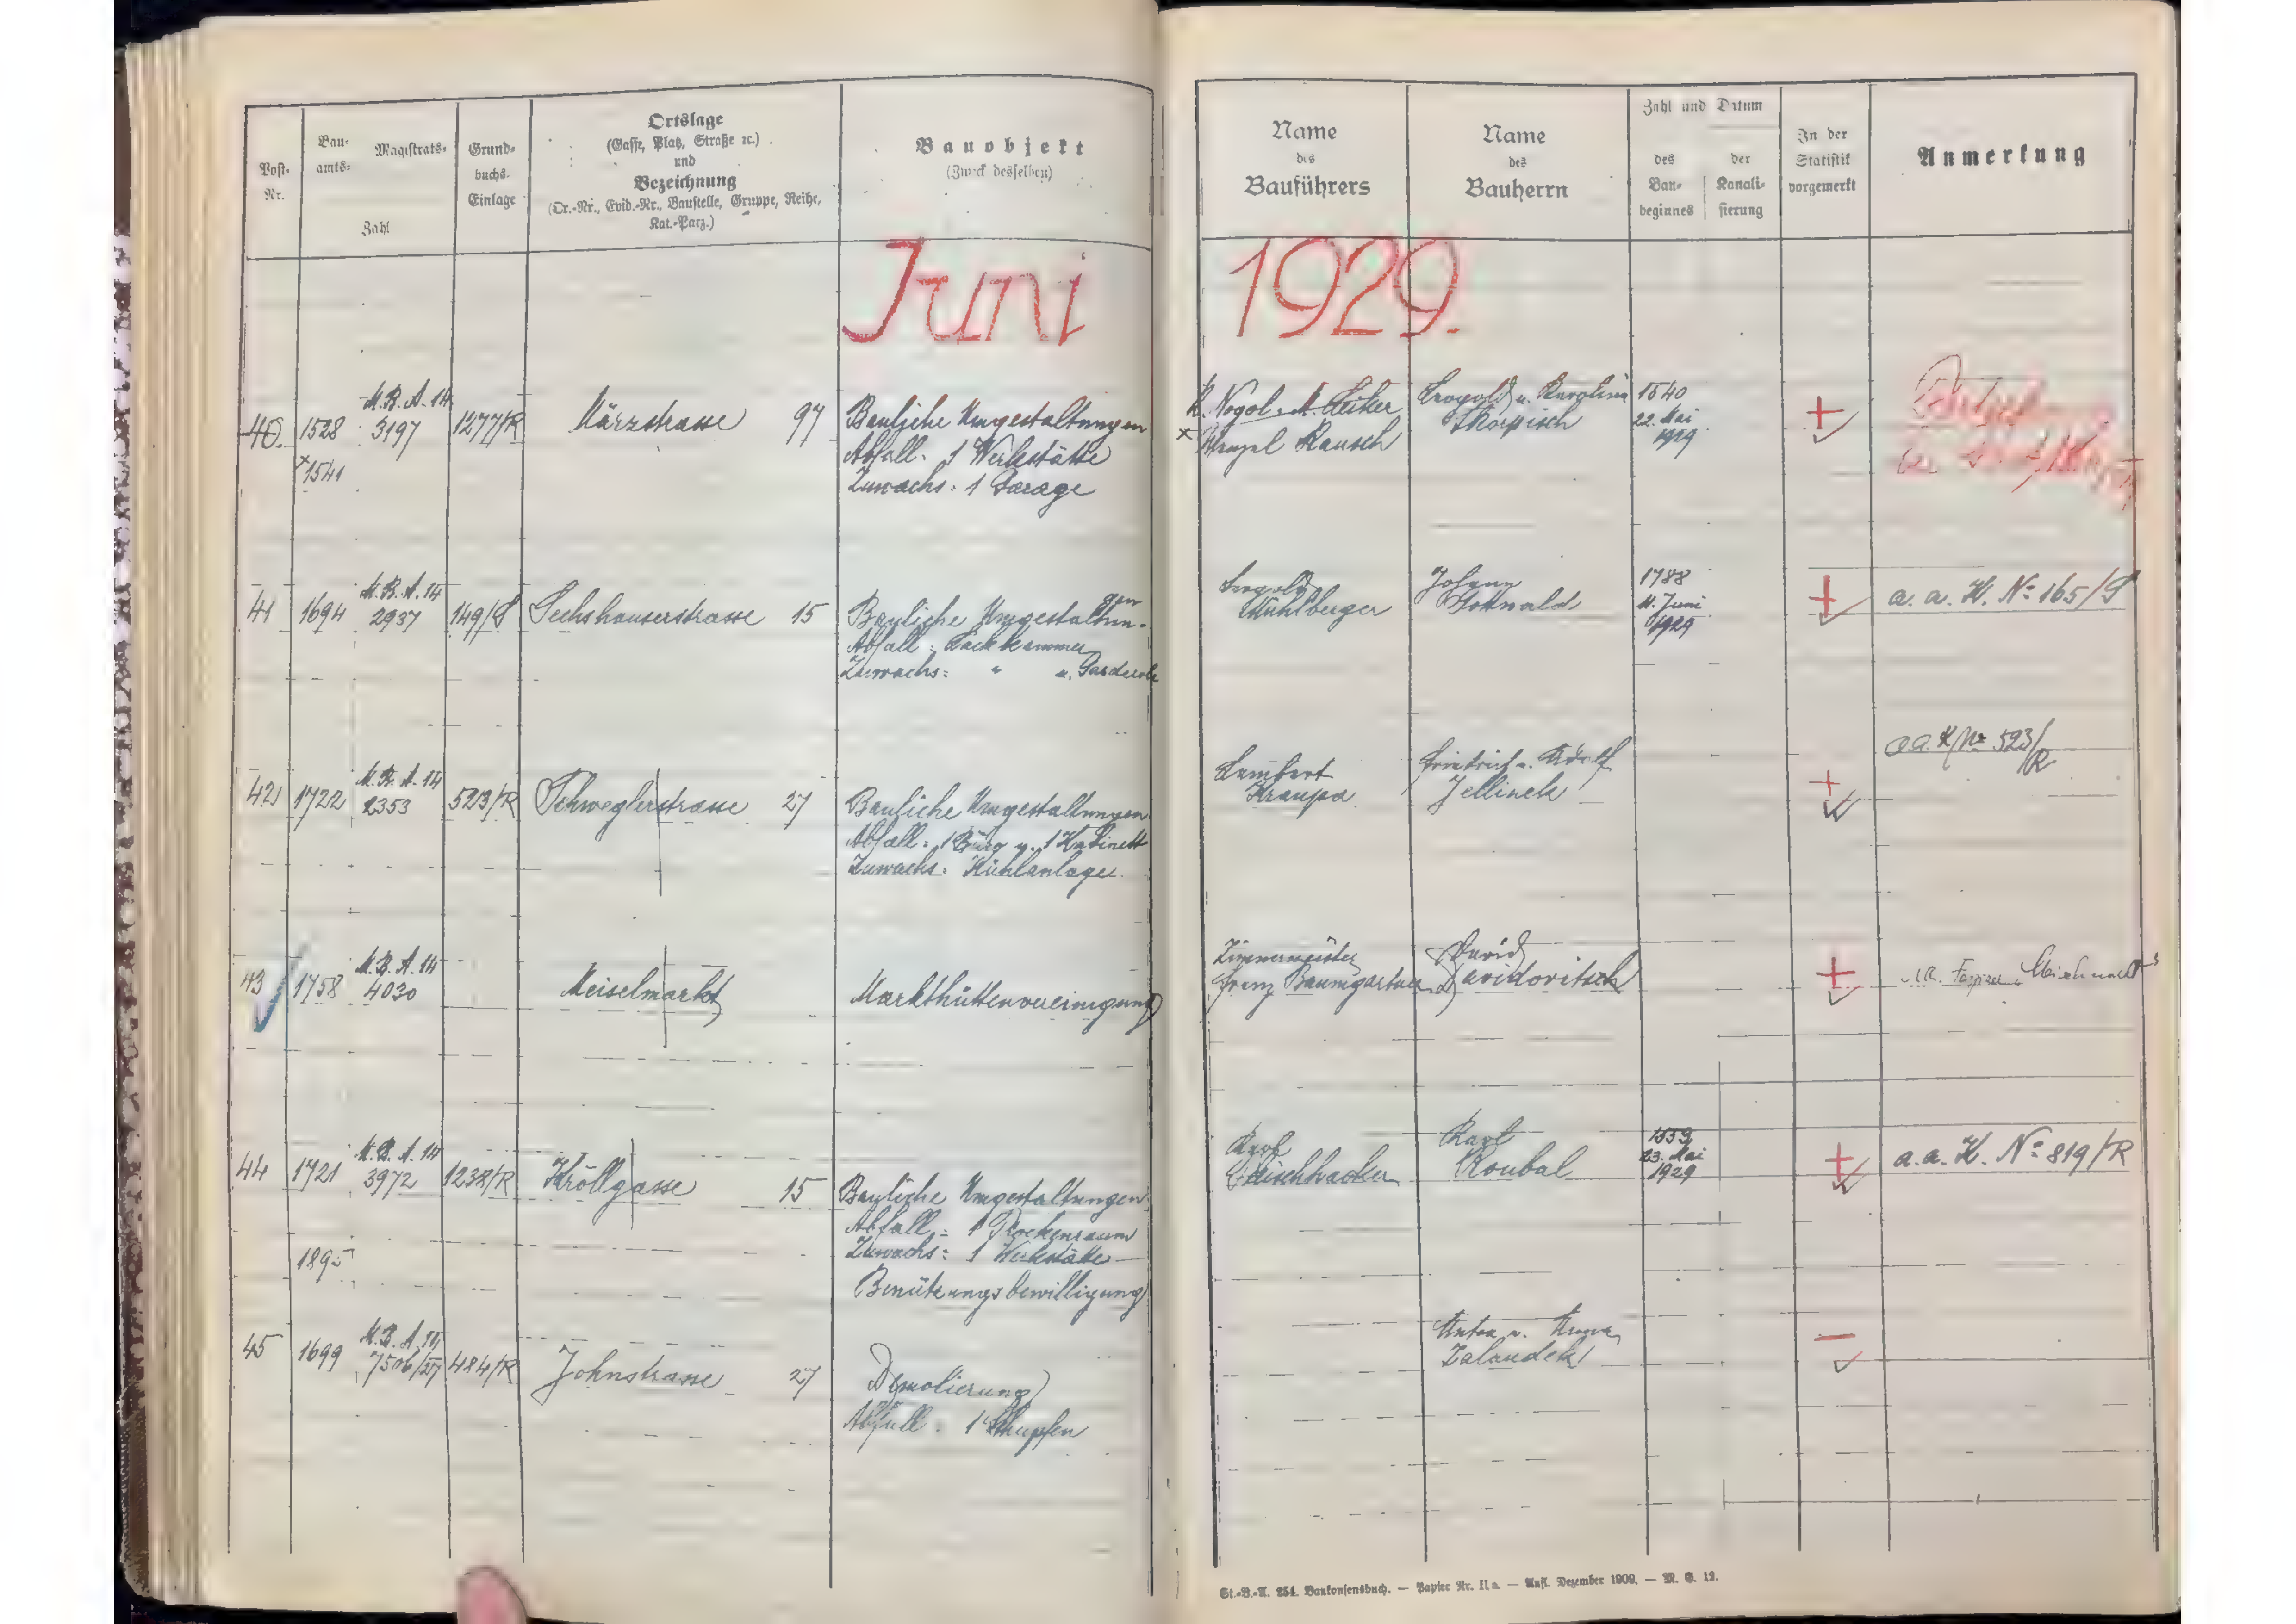 Post-
Nr.
Bau-
amts-
Magistrats-
Zahl
Grund-
buchs-
Einlage
Ortslage
(Gasse, Platz, Straße ꝛc.)
und
Bezeichnung
(Or.-Nr., Evid.-Nr., Baustelle, Gruppe, Reihe,
Kat.-Parz.)
Bauobjekt
(Zweck desselben)
Name
des
Bauführers
Name
des
Bauherrn
Zahl und Datum
des
Bau-
beginnes
der
Kanali-
sierung
In der
Statistik
vorgemerkt
Anmerkung
Juni 1929.
40. 1528 M.B.A. 14 3197 1277/R Märzstrasse 97
× 1541
Bauliche Umgestaltungen
Abfall: 1 Werkstätte
Zuwachs: 1 Garage
× Wenzel Rausch
Leopold u. Karolina
Skopisch
1540
22. Mai
1929
+
41 1694 M.B.A. 14 2937 149/S Sechshauserstrasse 15
Bauliche Umgestaltun-
gen
Abfall: Backkammer
Zuwachs: " u. Garderobe
Leopold
Mühlberger
Johann
Gottwald
1788
11. Juni
1929
+
a. a. K. No 165/S
42 1722 M.B.A. 14 2353 523/R Schweglerstrasse 27
Bauliche Umgestaltungen
Abfall: 1 Büro u. 1 Kabinett
Zuwachs: Kühlanlage
Lambert
Kraupa
Friedrich u. Adolf
Jellinek
+
a.a. K No 523/R
43 1758 M.B.A. 14 4030 Meiselmarkt
Markthüttenvereinigung
Zimmermeister
Franz Baumgartner
David
Davidovitsch
+
44 1721 M.B.A. 14 3972 1238/R Kröllgasse 15
Bauliche Umgestaltungen
Abfall: 1 Trockenraum
Zuwachs: 1 Werkstätte
1895
Benützungsbewilligung
Karl
Fleischhacker
Karl
Roubal
1559
23. Mai
1929
+
a. a. K. No 819/R
45 1699 M.B.A. 14 7506/27 484/R Johnstrasse 27
Demolierung
Abfall: 1 Schupfen
Anton u. Anna
Zalaudek
–
St.-B.-A. 254. Baukonsensbuch. — Papier Nr. II a. — Aufl. Dezember 1909. — M. G. 12.